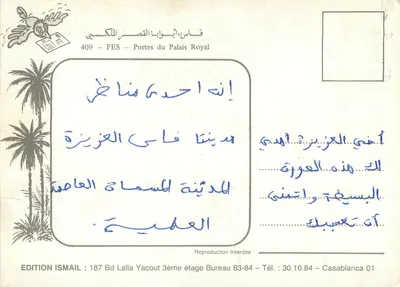 فاس، أبواب القصر الملكي
409 - FES - Portes du Palais Royal
إنه احدى مناظر
مدينتنا فاس العزيزة
المدينة المسماة العاصمة
العلمية.
أختي العزيزة أهدي
لك هذه الصورة
البسيطة واتمنى
أن تعجبك
Reproduction Interdite
EDITION ISMAIL : 187 Bd Lalla Yacout 3ème étage Bureau 83-84 - Tél. : 30.10.84 - Casablanca 01